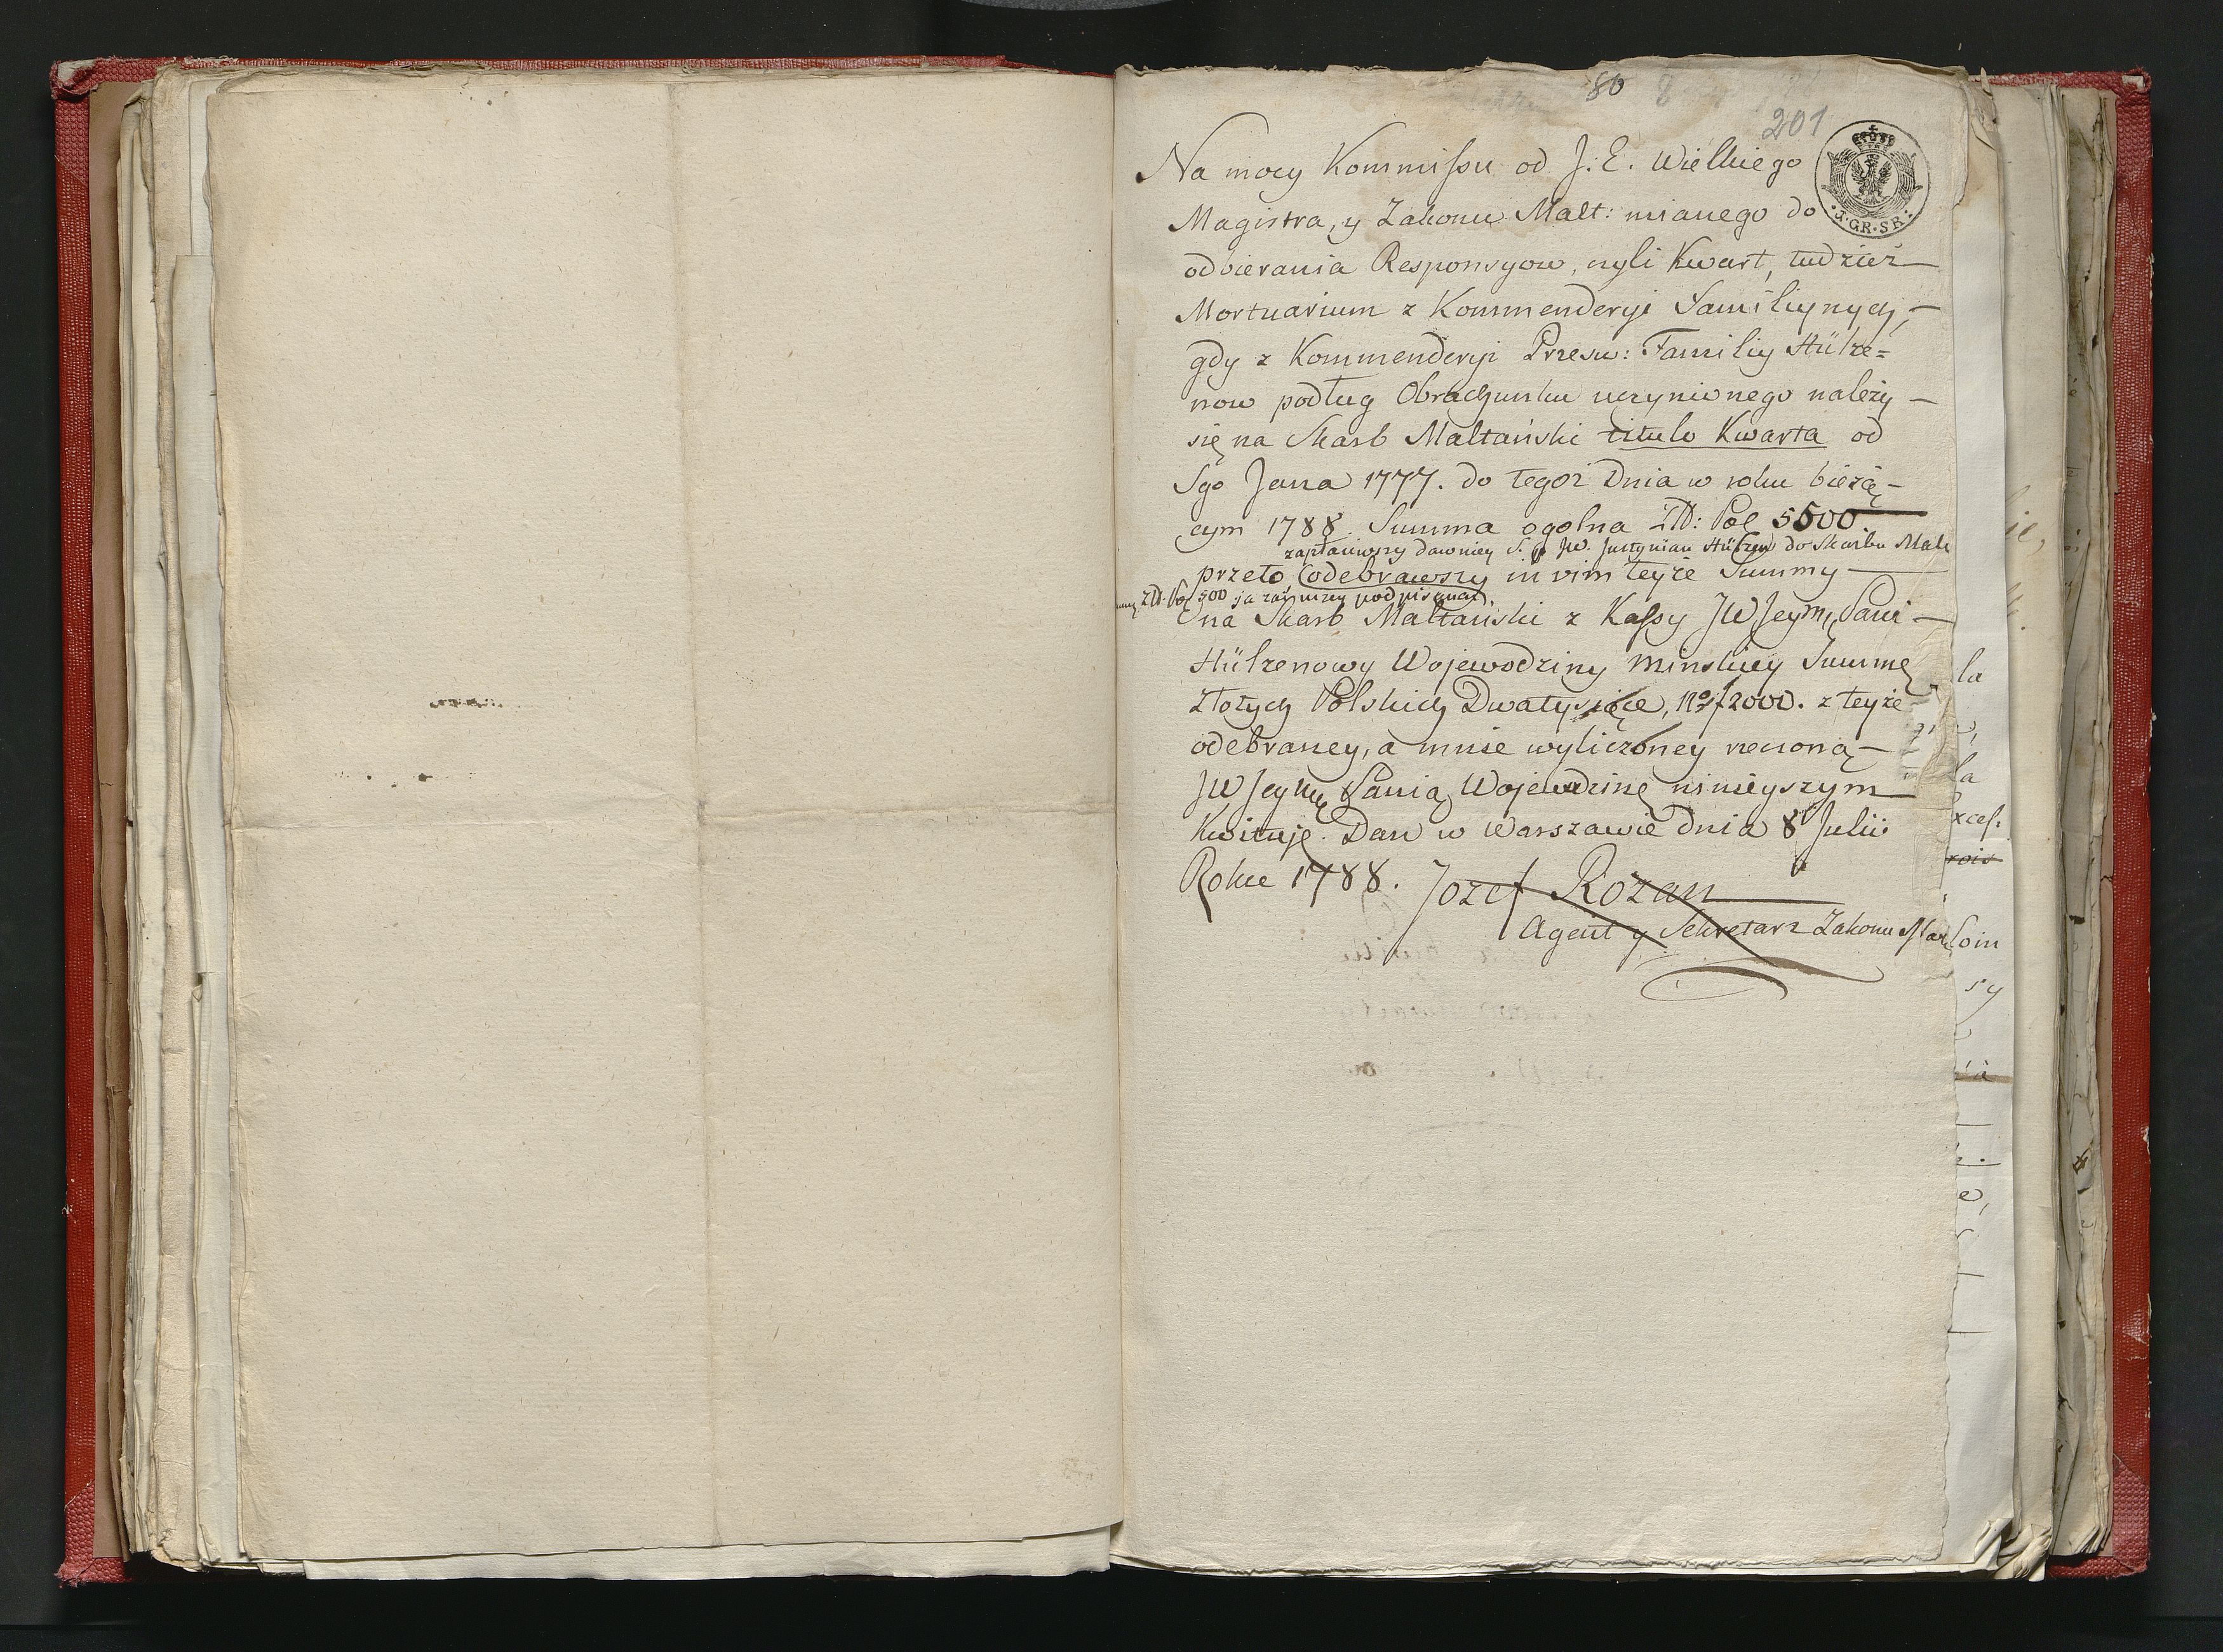 80
201
Na mocy Kommissu od J. E. Wielkiego
Magistra, y Zakonu Malt: mianego do
4. GR. SR.
odbierania Responsyow, czyli Kwart, tudzież
Mortuarium z Kommenderyi Familiynych,
gdy z Kommenderyi Przesw: Familiy Hülze=
now podług Obrachunku uczynionego należy
się na Skarb Maltański titulo Kwarta od
Sgo Jana 1777. do tegoż Dnia w roku bieżą-
cym 1788. Summa ogolna Złł: Pol 5500.
zapłaciwszy dawniey S. p JW. Justynian Hülzen do Skarbu Malt
przeto odebrawszy in vim teyże Summy
Złł. Pol 500 ja zaś niżey podpisany
na Skarb Maltański z Kassy JW Jeymć Pani
Hülzenowy Wojewodziny Minskiey Summę
Złotych Polskich Dwatysiące, No f 2000. z teyże
odebraney, a mnie wyliczoney rzeczoną
JW Jeymć Panią Wojewodzinę ninieyszym
Kwituję. Dan w Warszawie dnia 8 Julii
Roku 1788.
Jozef Rozan
Agent y Sekretarz Zakonu Mal